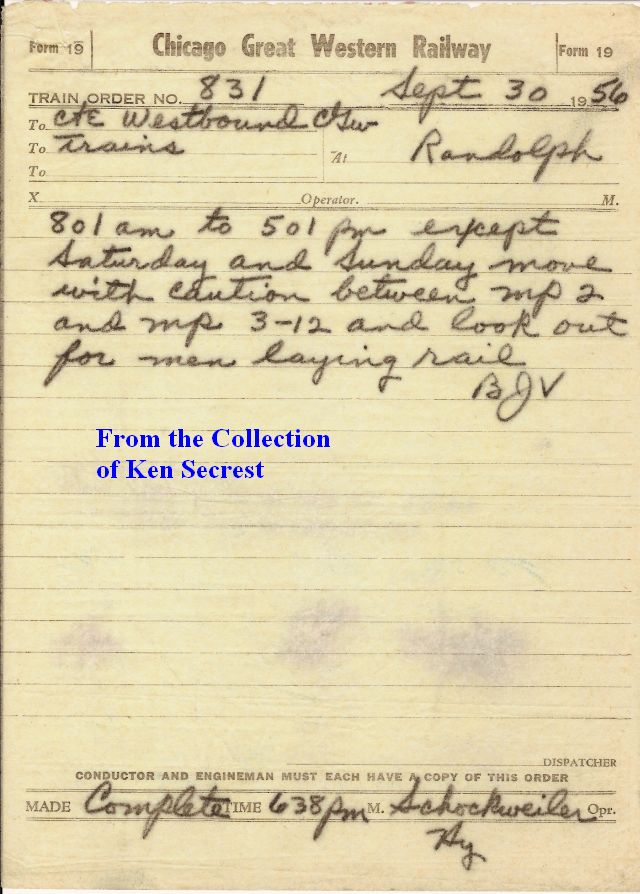 Form 19 Chicago Great Western Railway Form 19
TRAIN ORDER NO. 831 Sept 30 1956
To C&E Westbound CGW
To trains At Randolph
To
X Operator. M.
801 am to 501 pm except
Saturday and Sunday move
with caution between mp 2
and mp 3-12 and look out
for men laying rail
BJV
From the Collection
of Ken Secrest
DISPATCHER
CONDUCTOR AND ENGINEMAN MUST EACH HAVE A COPY OF THIS ORDER
MADE Complete TIME 638 pm M. Schockweiler Opr.